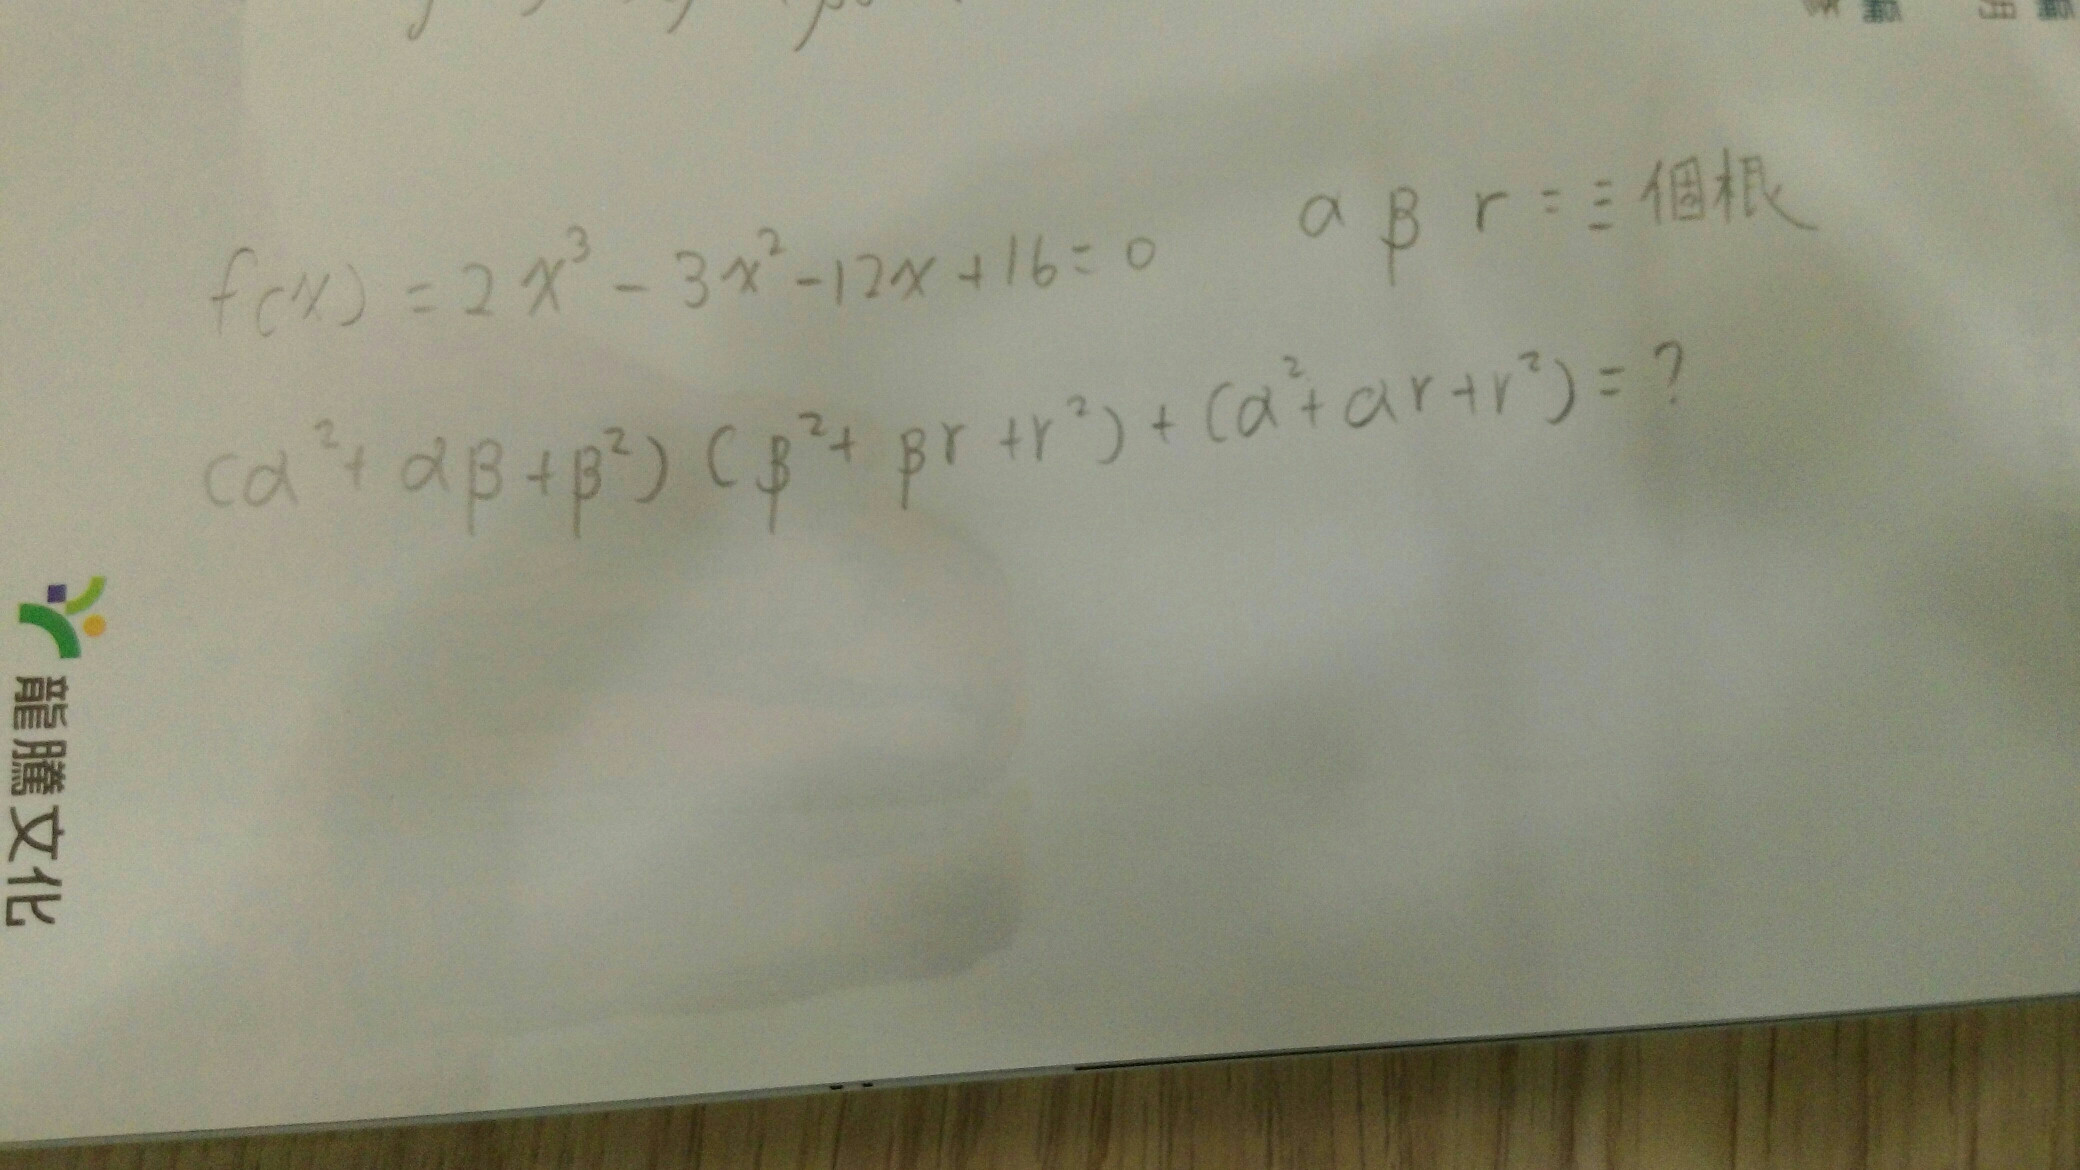 f(x) = 2x³ - 3x² - 12x + 16 = 0 α β r = 三個根
(α² + αβ + β²) (β² + βr + r²) + (α² + αr + r²) = ?
龍騰文化